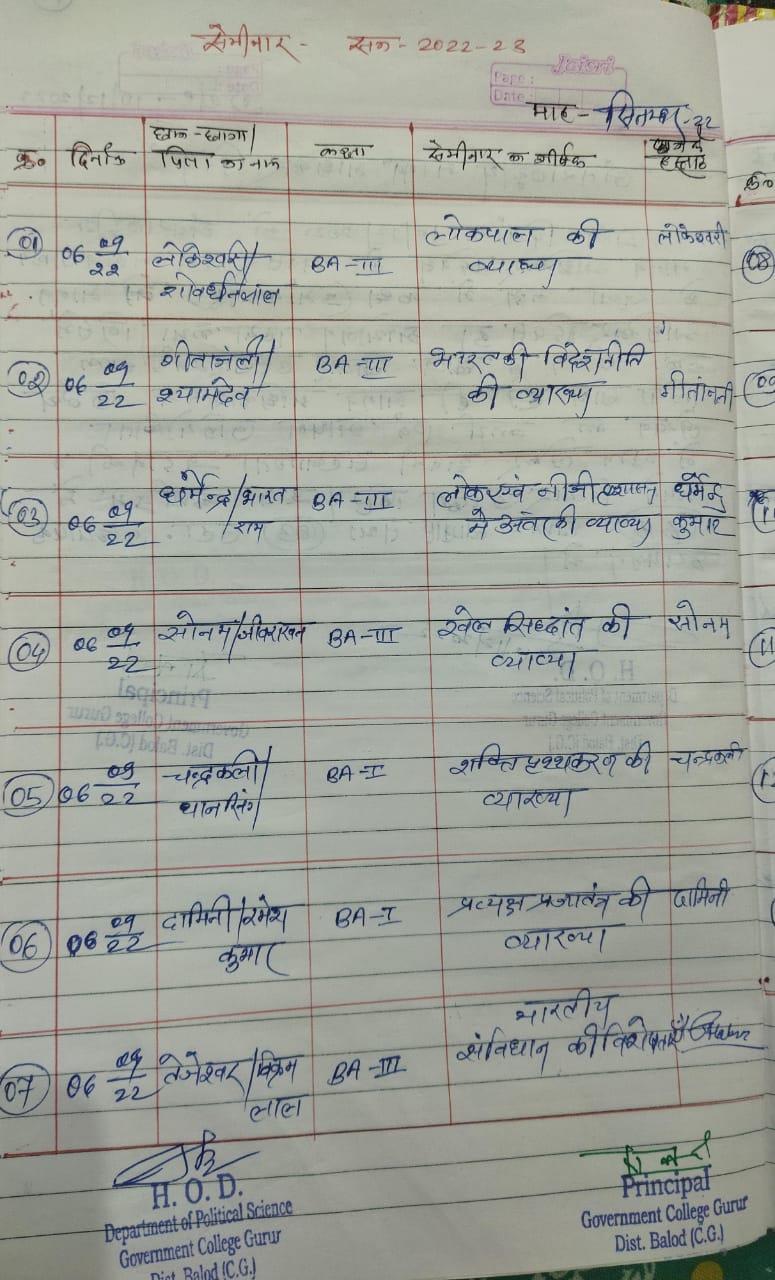 सेमीनार - सत्र - 2022-23
Page :
Date :
माह - सितम्बर - 22
क्र० दिनाँक छात्र-छात्रा/ पिता का नाम कक्षा सेमीनार का शीर्षक हस्ता०
01 06 09/22 लोकेश्वरी/ BA-III लोकपाल की लोकेश्वरी
गोवर्धनलाल व्याख्या
02 06 09/22 गीतांजली/ BA-III भारत की विदेशनीति गीतांजली
श्यामदेव की व्याख्या
03 06 09/22 धर्मेन्द्र/भारत BA-III लोक एवं नीजी प्रशासन धर्मेन्द्र
राम में अंतर की व्याख्या कुमार
04 06 09/22 सोनम/जीवराखन BA-III खेल सिद्धांत की सोनम
व्याख्या
05 06 09/22 चन्द्रकली/ BA-I शक्ति पृथ्थकरण की चन्द्रकली
थानसिंग व्याख्या
06 06 09/22 दामिनी/रमेश BA-I प्रत्यक्ष प्रजातंत्र की दामिनी
कुमार व्याख्या
07 06 09/22 तेजेश्वर/विक्रम BA-III भारतीय
लाल संविधान की विशेषताएँ
H. O. D.
Department of Political Science
Government College Gurur
Dist. Balod (C.G.)
Principal
Government College Gurur
Dist. Balod (C.G.)